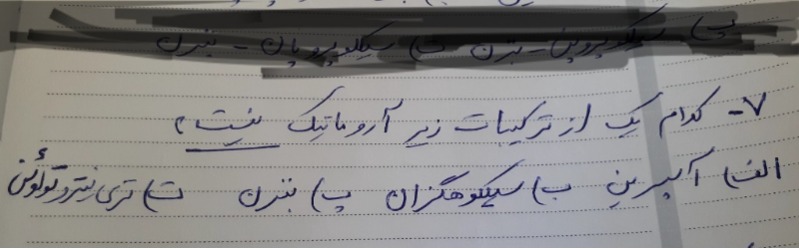 پ) سیکلوپروپن - بنزن ت) سیکلوپروپان - بنزن
۷- کدام یک از ترکیبات زیر آروماتیک نیست؟
الف) آسپرین ب) سیکلوهگزان پ) بنزن ت) تری نیترو تولوئن